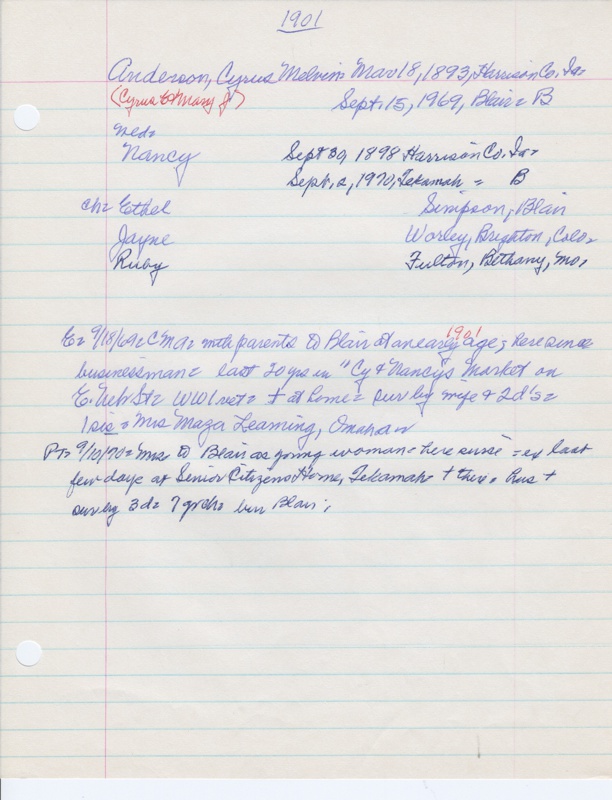 1901
Anderson, Cyrus Melvin = Mar 18, 1893, Harrison Co. Ia=
(Cyrus & Mary J.) Sept. 15, 1969, Blair = B
Nancy Sept 30, 1898 Harrison Co. Ia=
Sept. 2, 1970, Tekamah = B
ch= Ethel Simpson, Blair
Jayne Worley, Brighton, Colo.
Ruby Fulton, Bethany, Mo.
1901
E= 9/18/69 = CMA= with parents to Blair at an early age; here since
businessman = last 20 yrs in "Cy & Nancy's Market on
E. Neb St= WW1 vet= + at home = surv by wife & 2 d's=
1 sis = Mrs Leaming, Omaha
PT= 9/10/70= to Blair as young woman = here since = ex last
few days at Senior Citizens Home, Tekamah + there. Hus +
surv by 3 d= 7 grch= bur Blair;